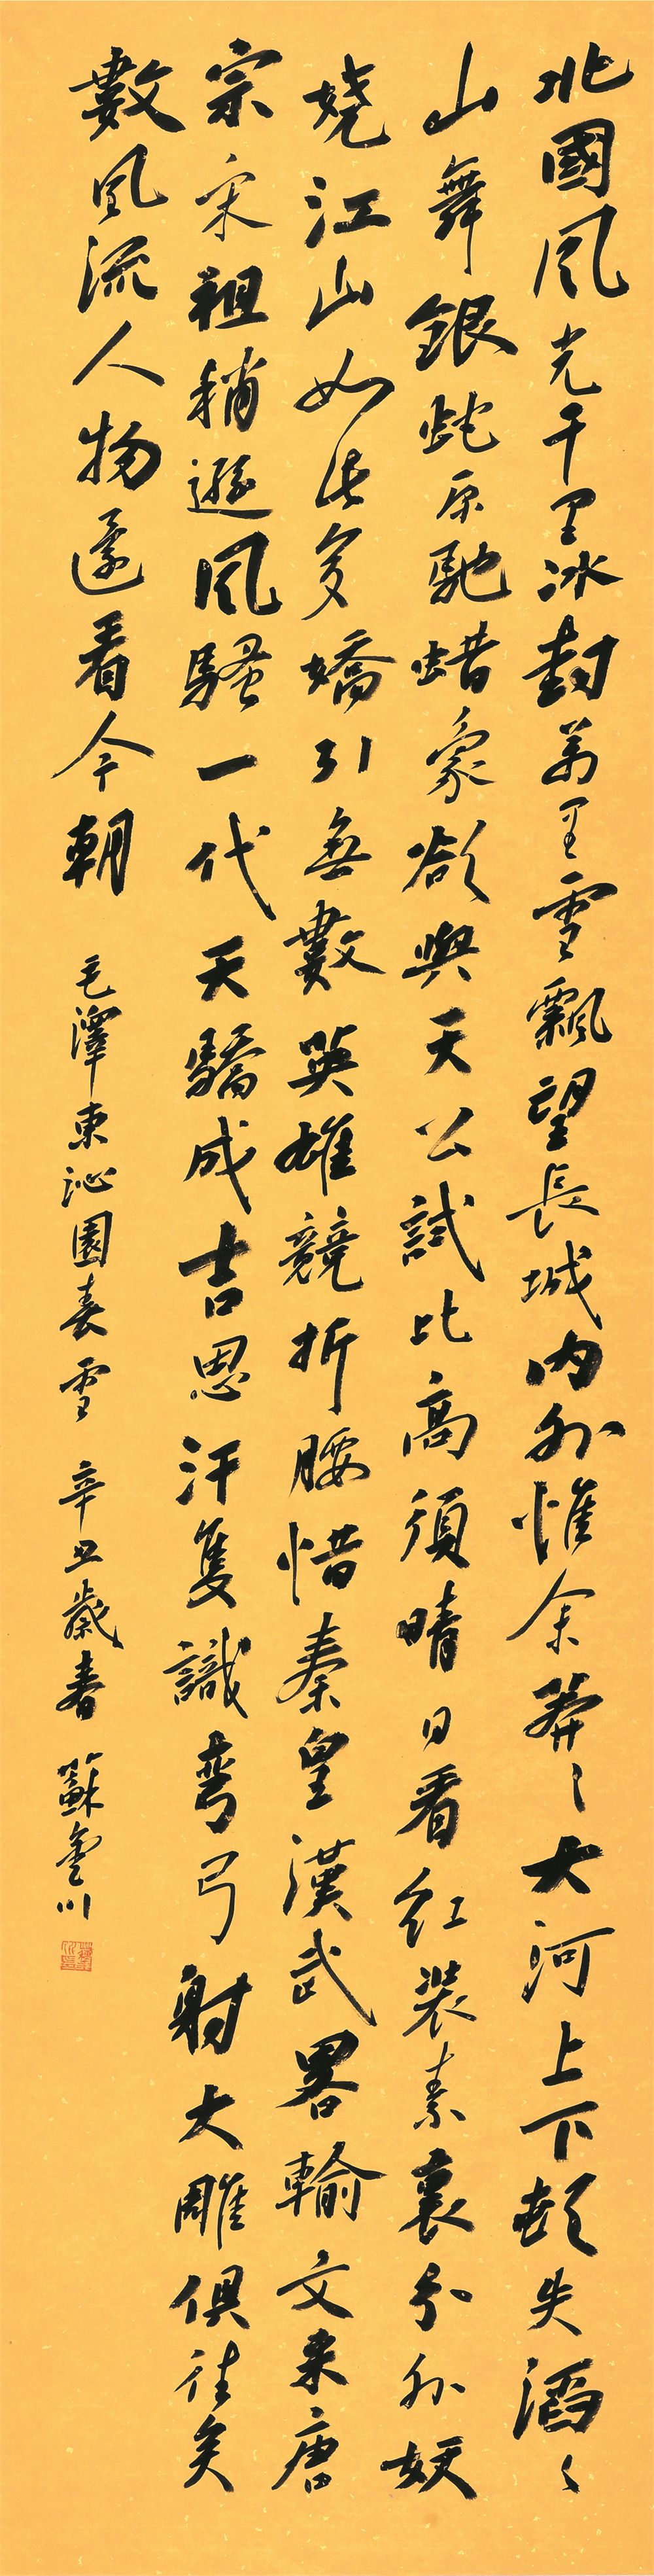 北國風光千里冰封萬里雪飄望長城內外惟余莽々大河上下頓失滔々
山舞銀蛇原馳蜡象欲與天公試比高須晴日看紅裝素裹分外妖
嬈江山如此多嬌引無數英雄競折腰惜秦皇漢武畧輸文采唐
宗宋祖稍遜風騷一代天驕成吉思汗隻識彎弓射大雕俱往矣
數風流人物還看今朝 毛澤東沁園春雪 辛丑歲春 蘇川